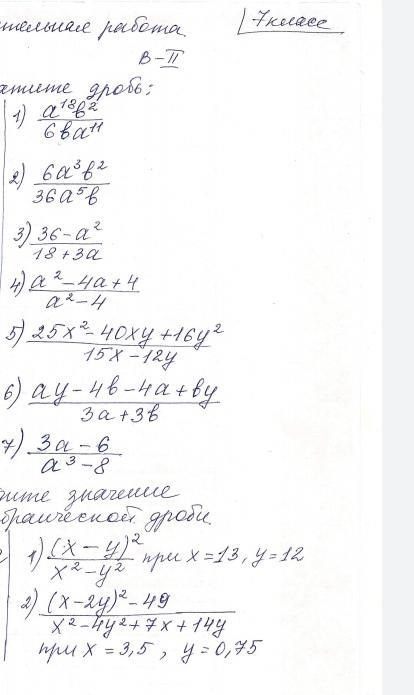 7 класс
работа
В-II
дробь:
1) a¹⁸b²/6ba¹¹
2) 6a³b²/36a⁵b
3) 36-a²/18+3a
4) a²-4a+4/a²-4
5) 25x²-40xy+16y²/15x-12y
6) ay-4b-4a+by/3a+3b
7) 3a-6/a³-8
значение
дроби.
1) (x-y)²/x²-y² при x=13, y=12
2) (x-2y)²-49/x²-4y²+7x+14y
при x=3,5, y=0,75